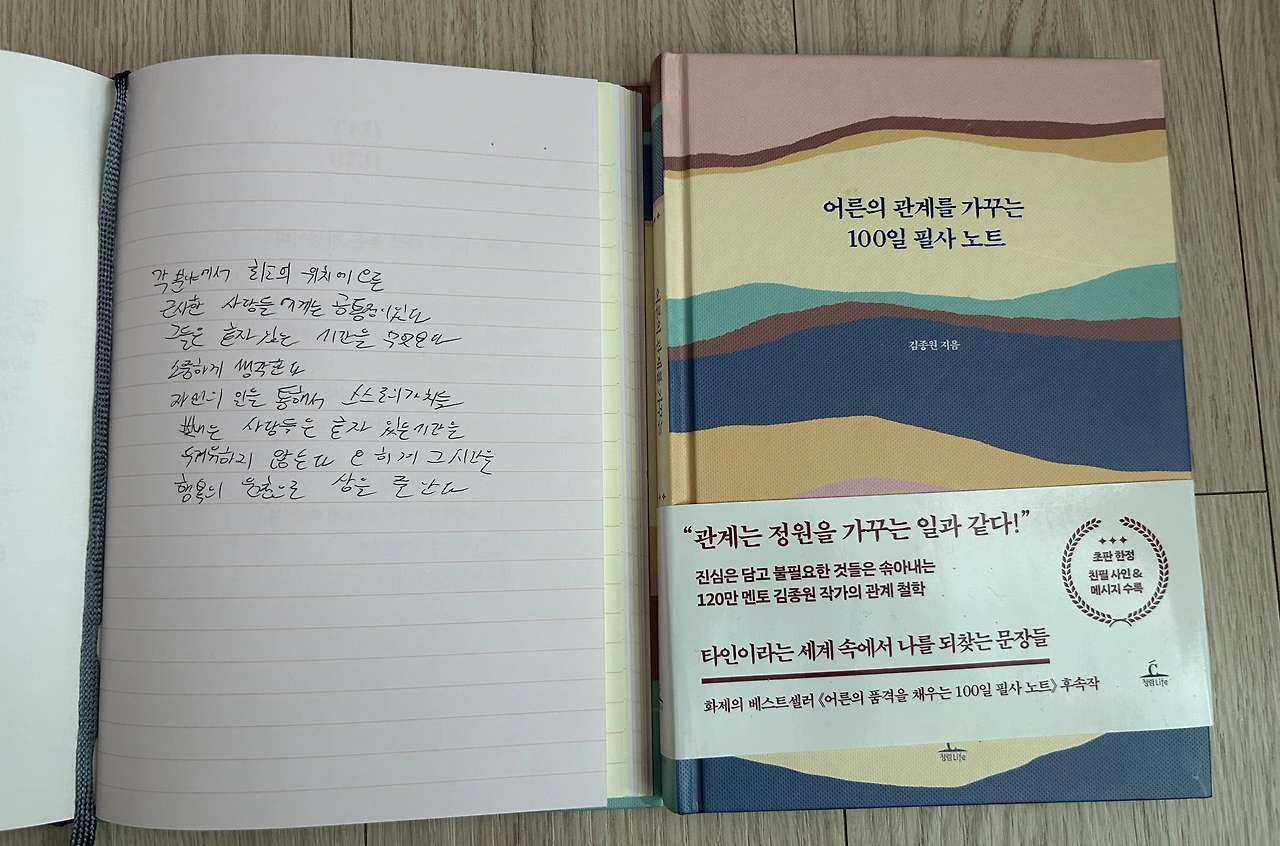 각 분야에서 최고의 위치에 오른
근사한 사람들에게는 공통점이 있다
그들은 혼자 있는 시간을 무엇보다
소중하게 생각한다
자신의 일을 통해서 스스로의 가치를
빛내는 사람들은 혼자 있는 시간을
하지 않는다 히려 그 시간을
행복의 원천으로 삼을 줄 안다
어른의 관계를 가꾸는
100일 필사 노트
김종원 지음
어른의 관계를 가꾸는
“관계는 정원을 가꾸는 일과 같다!”
진심은 담고 불필요한 것들은 솎아내는
120만 멘토 김종원 작가의 관계 철학
초판 한정
친필 사인 &
메시지 수록
타인이라는 세계 속에서 나를 되찾는 문장들
화제의 베스트셀러 《어른의 품격을 채우는 100일 필사 노트》 후속작
청림Life
청림Life